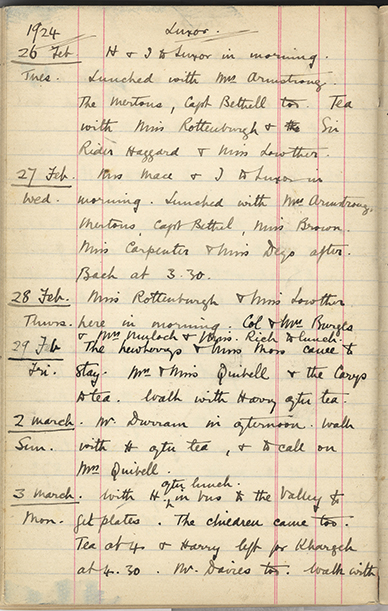 1924 Luxor.
26 Feb. H & I to Luxor in morning.
Tues. Lunched with Mrs Armstrong.
The Mertons, Capt Bethell too. Tea
with Miss Rottenburgh & Sir
Rider Haggard & Miss Lowther.
27 Feb. Miss Mace & I to Luxor in
Wed. morning. Lunched with Mrs Armstrong,
Mertons, Capt Bethel, Miss Brown
Miss Carpenter & Miss after.
Back at 3.30.
28 Feb. Miss Rottenburgh & Miss Lowther
Thurs. here in morning. Col & Mrs
& Mrs & Rich to lunch.
29 Feb The Newberrys & Miss Moss came to
Fri. stay. Mr & Miss Quibell & the
to tea. Walk with Harry after tea.
2 March. Mr Durram in afternoon. Walk
Sun. with H after tea, & to call on
Mrs Quibell.
after lunch.
3 March. With H in bus to the Valley to
Mon. get plates. The children came too.
Tea at 4 & Harry left for Khargeh
at 4.30. Mr Davies too. Walk with